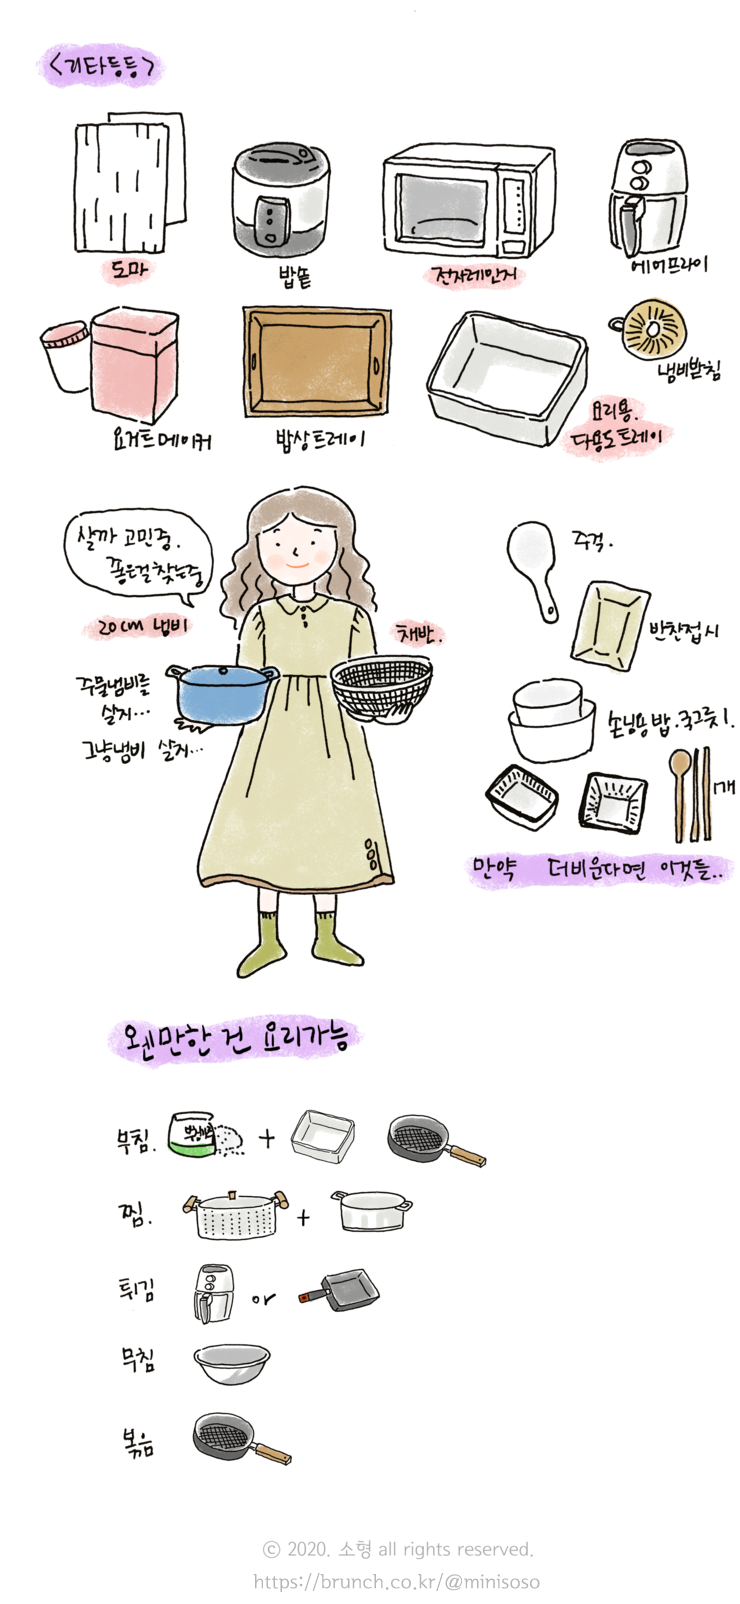 <기타등등>
도마
밥솥
전자레인지
에어프라이
요거트메이커
밥상트레이
요리용.
다용도트레이
냄비받침
살까 고민중.
좋은걸찾는중
20cm 냄비
채반.
주물냄비를
살지...
그냥냄비 살지...
주걱.
반찬접시
손님용 밥.국그릇1.
1개
만약 더비운다면 이것들..
왠만한 건 요리가능
부침.
부침가루
+
찜.
+
튀김
or
무침
볶음
ⓒ 2020. 소형 all rights reserved.
https://brunch.co.kr/@minisoso